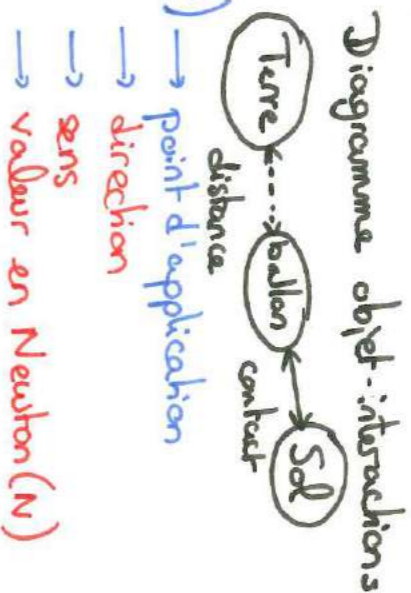 Diagramme objet-interactions
Terre ballon Sol
distance contact
) → point d'application
→ direction
→ sens
→ valeur en Newton (N)